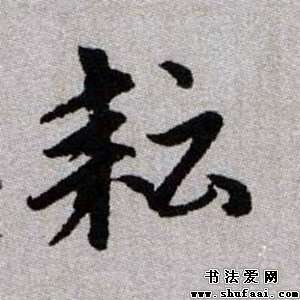 耘
书法爱网
www.shufaai.com